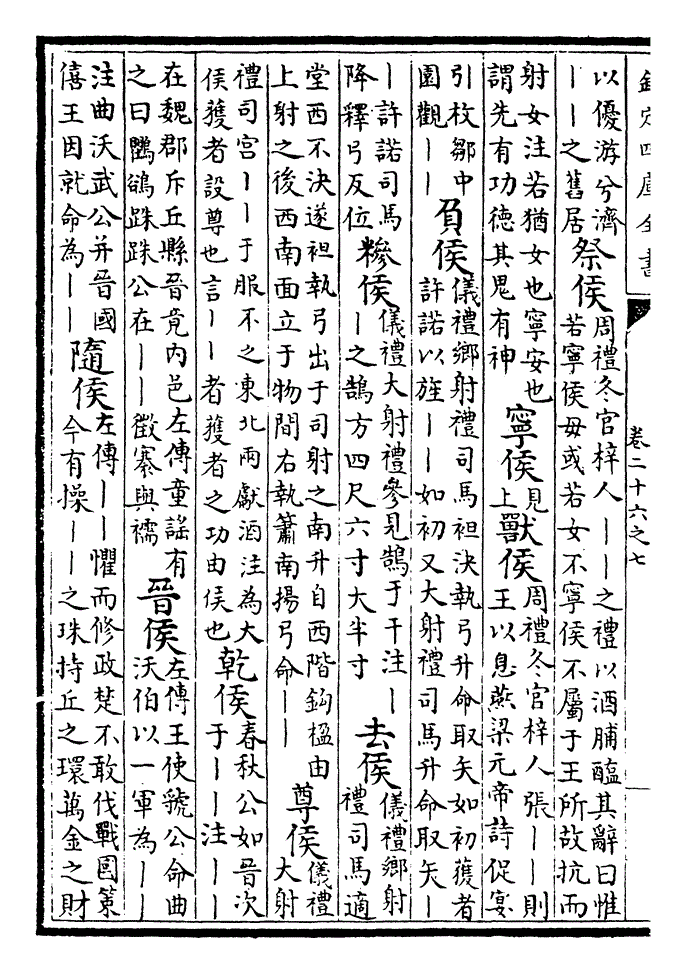 欽定四庫全書
卷二十六之七
以優游兮濟丨丨之舊居祭侯周禮冬官梓人丨丨之禮以酒脯醢其辭曰惟若寧侯毋或若女不寧侯不屬于王所故抗而
射女注若猶女也寧安也謂先有功德其鬼有神寧侯見上獸侯周禮冬官梓人張丨丨則王以息燕梁元帝詩促宴
引枚鄒中園觀丨丨負侯儀禮鄉射禮司馬袒決執弓升命取矢如初獲者許諾以旌丨丨如初又大射禮司馬升命取矢丨
丨許諾司馬降釋弓反位糝侯儀禮大射禮參見鵠于干注丨丨之鵠方四尺六寸大半寸去侯儀禮鄉射禮司馬適
堂西不決遂袒執弓出于司射之南升自西階鉤楹由上射之後西南面立于物間右執簫南揚弓命丨丨尊侯儀禮大射
禮司宮丨丨于服不之東北兩獻酒注為大侯獲者設尊也言丨丨者獲者之功由侯也乾侯春秋公如晉次于丨丨注丨丨
在魏郡斥丘縣晉竟内邑左傳童謠有之曰鸜鵒跦跦公在丨丨徵褰與襦晉侯左傳王使虢公命曲沃伯以一軍為丨丨
注曲沃武公并晉國僖王因就命為丨丨隨侯左傳丨丨懼而修政楚不敢伐戰國策今有操丨丨之珠持丘之環萬金之財